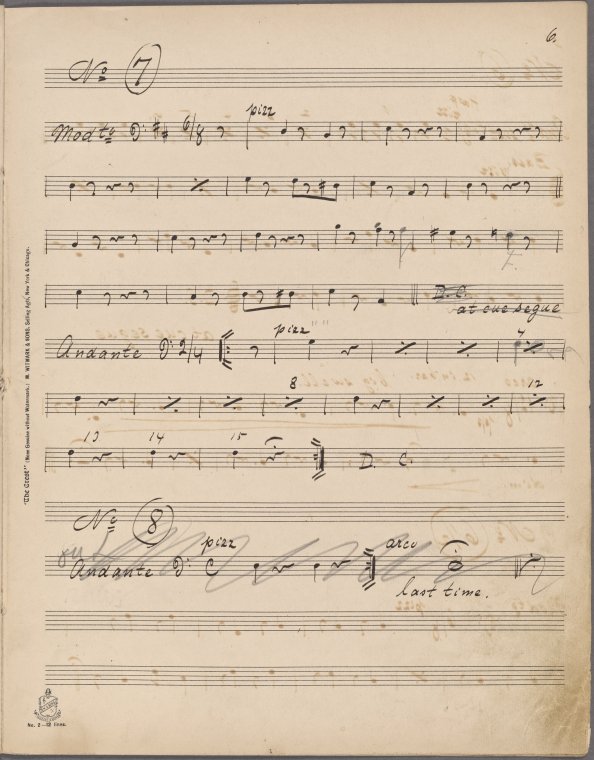 6.
No 7
pizz
Modto 6/8
D.C.
at cue segue
pizz
Andante 2/4
4
8 12
13 14 15
D. C.
No 8
pizz arco
Andante C
last time.
"The Crest" (None Genuine without Watermark.) M. WITMARK & SONS, Selling Agts, New York & Chicago.
No. 2 – 12 lines.